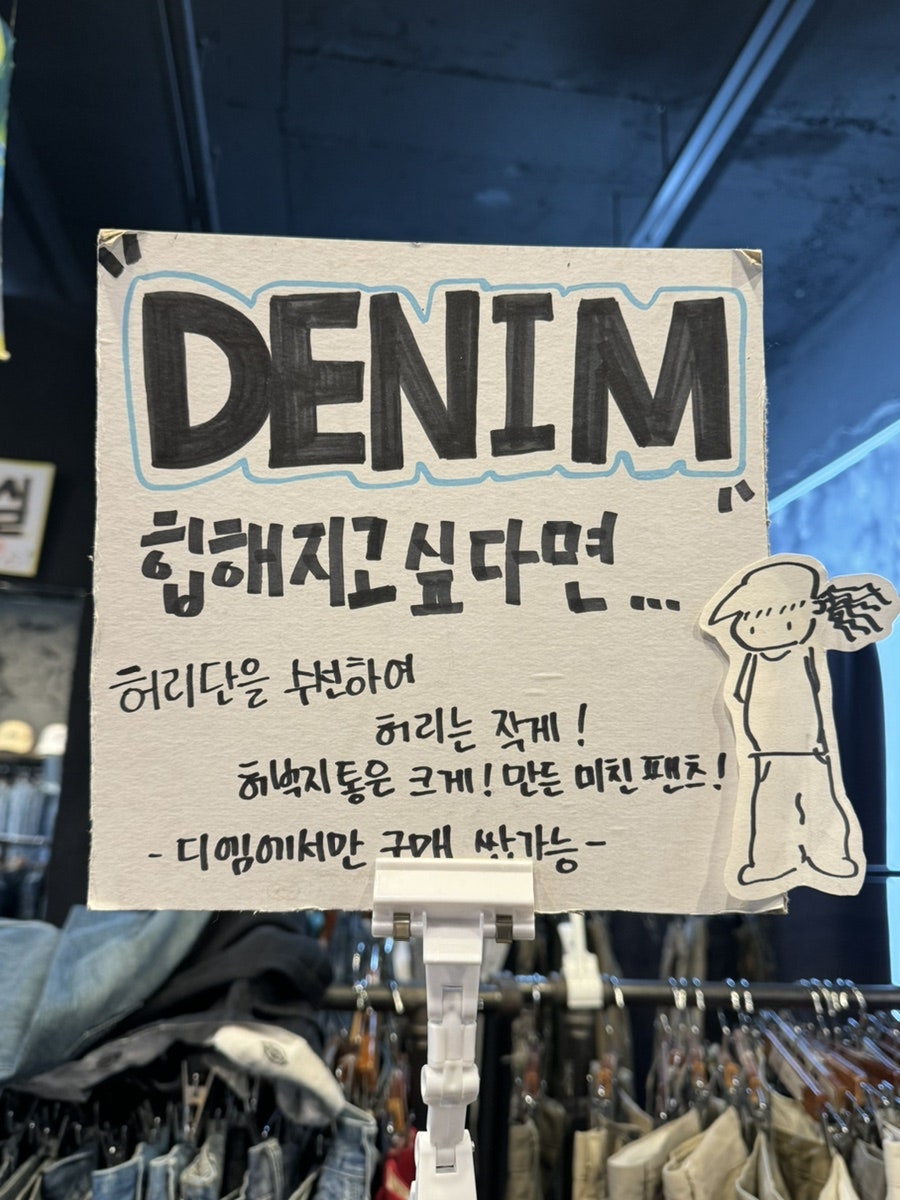 "DENIM"
힙해지고싶다면...
허리단을 수선하여
허리는 작게!
허벅지통은 크게! 만든 미친 팬츠!
- 디엠에서만 구매 쌉가능 -
실